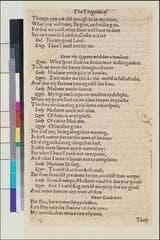 The Tragedie of
Though you are old enough to be my heire,
What you will haue, Ile giue, and willing to,
For doe we must what force will haue vs doe
Set on towards London, Cosen is it so?
Bul. Yea my good Lord:
King. Then I must not say no.
Enter the Queene with her attendants
Quee. What sport shall we deuise here in this garden,
To driue away the heauy thought of care?
Lady Madame weele play at bowles.
Quee. Twil make me thinke the world is full of rubs,
And that my fortune runs against the bias.
Lady Madame weele daunce.
Quee. My legs can keepe no measure in delight,
When my poore hart no measure keepes in griefe:
Therefore no dauncing girle, some other sport.
Lady Madame weele tell tales.
Quee. Of sorrow or of griefe
Lady Of either Madam.
Quee. Of neither girle
For if of ioy, being altogither wanting,
It doth remember me the more of sorrow:
Or if of griefe, being altogither had,
It adds more sorrow to my want of ioy:
For what I haue I need not to repeate,
And what I want it bootes not to complaine.
Lady Madame Ile sing.
Quee. Tis well that thou hast cause,
But thou shouldst please me better, wouldst thou weepe.
Lady I could weepe, Madame, would it doe you good.
Quee. And I could sing would weeping doe me good,
And neuer borrow any teare of thee.
Enter Gardeners.
But stay, here come the gardeners,
Lets step into the shadow of these trees,
My wretchednes vnto a row of pines,
They